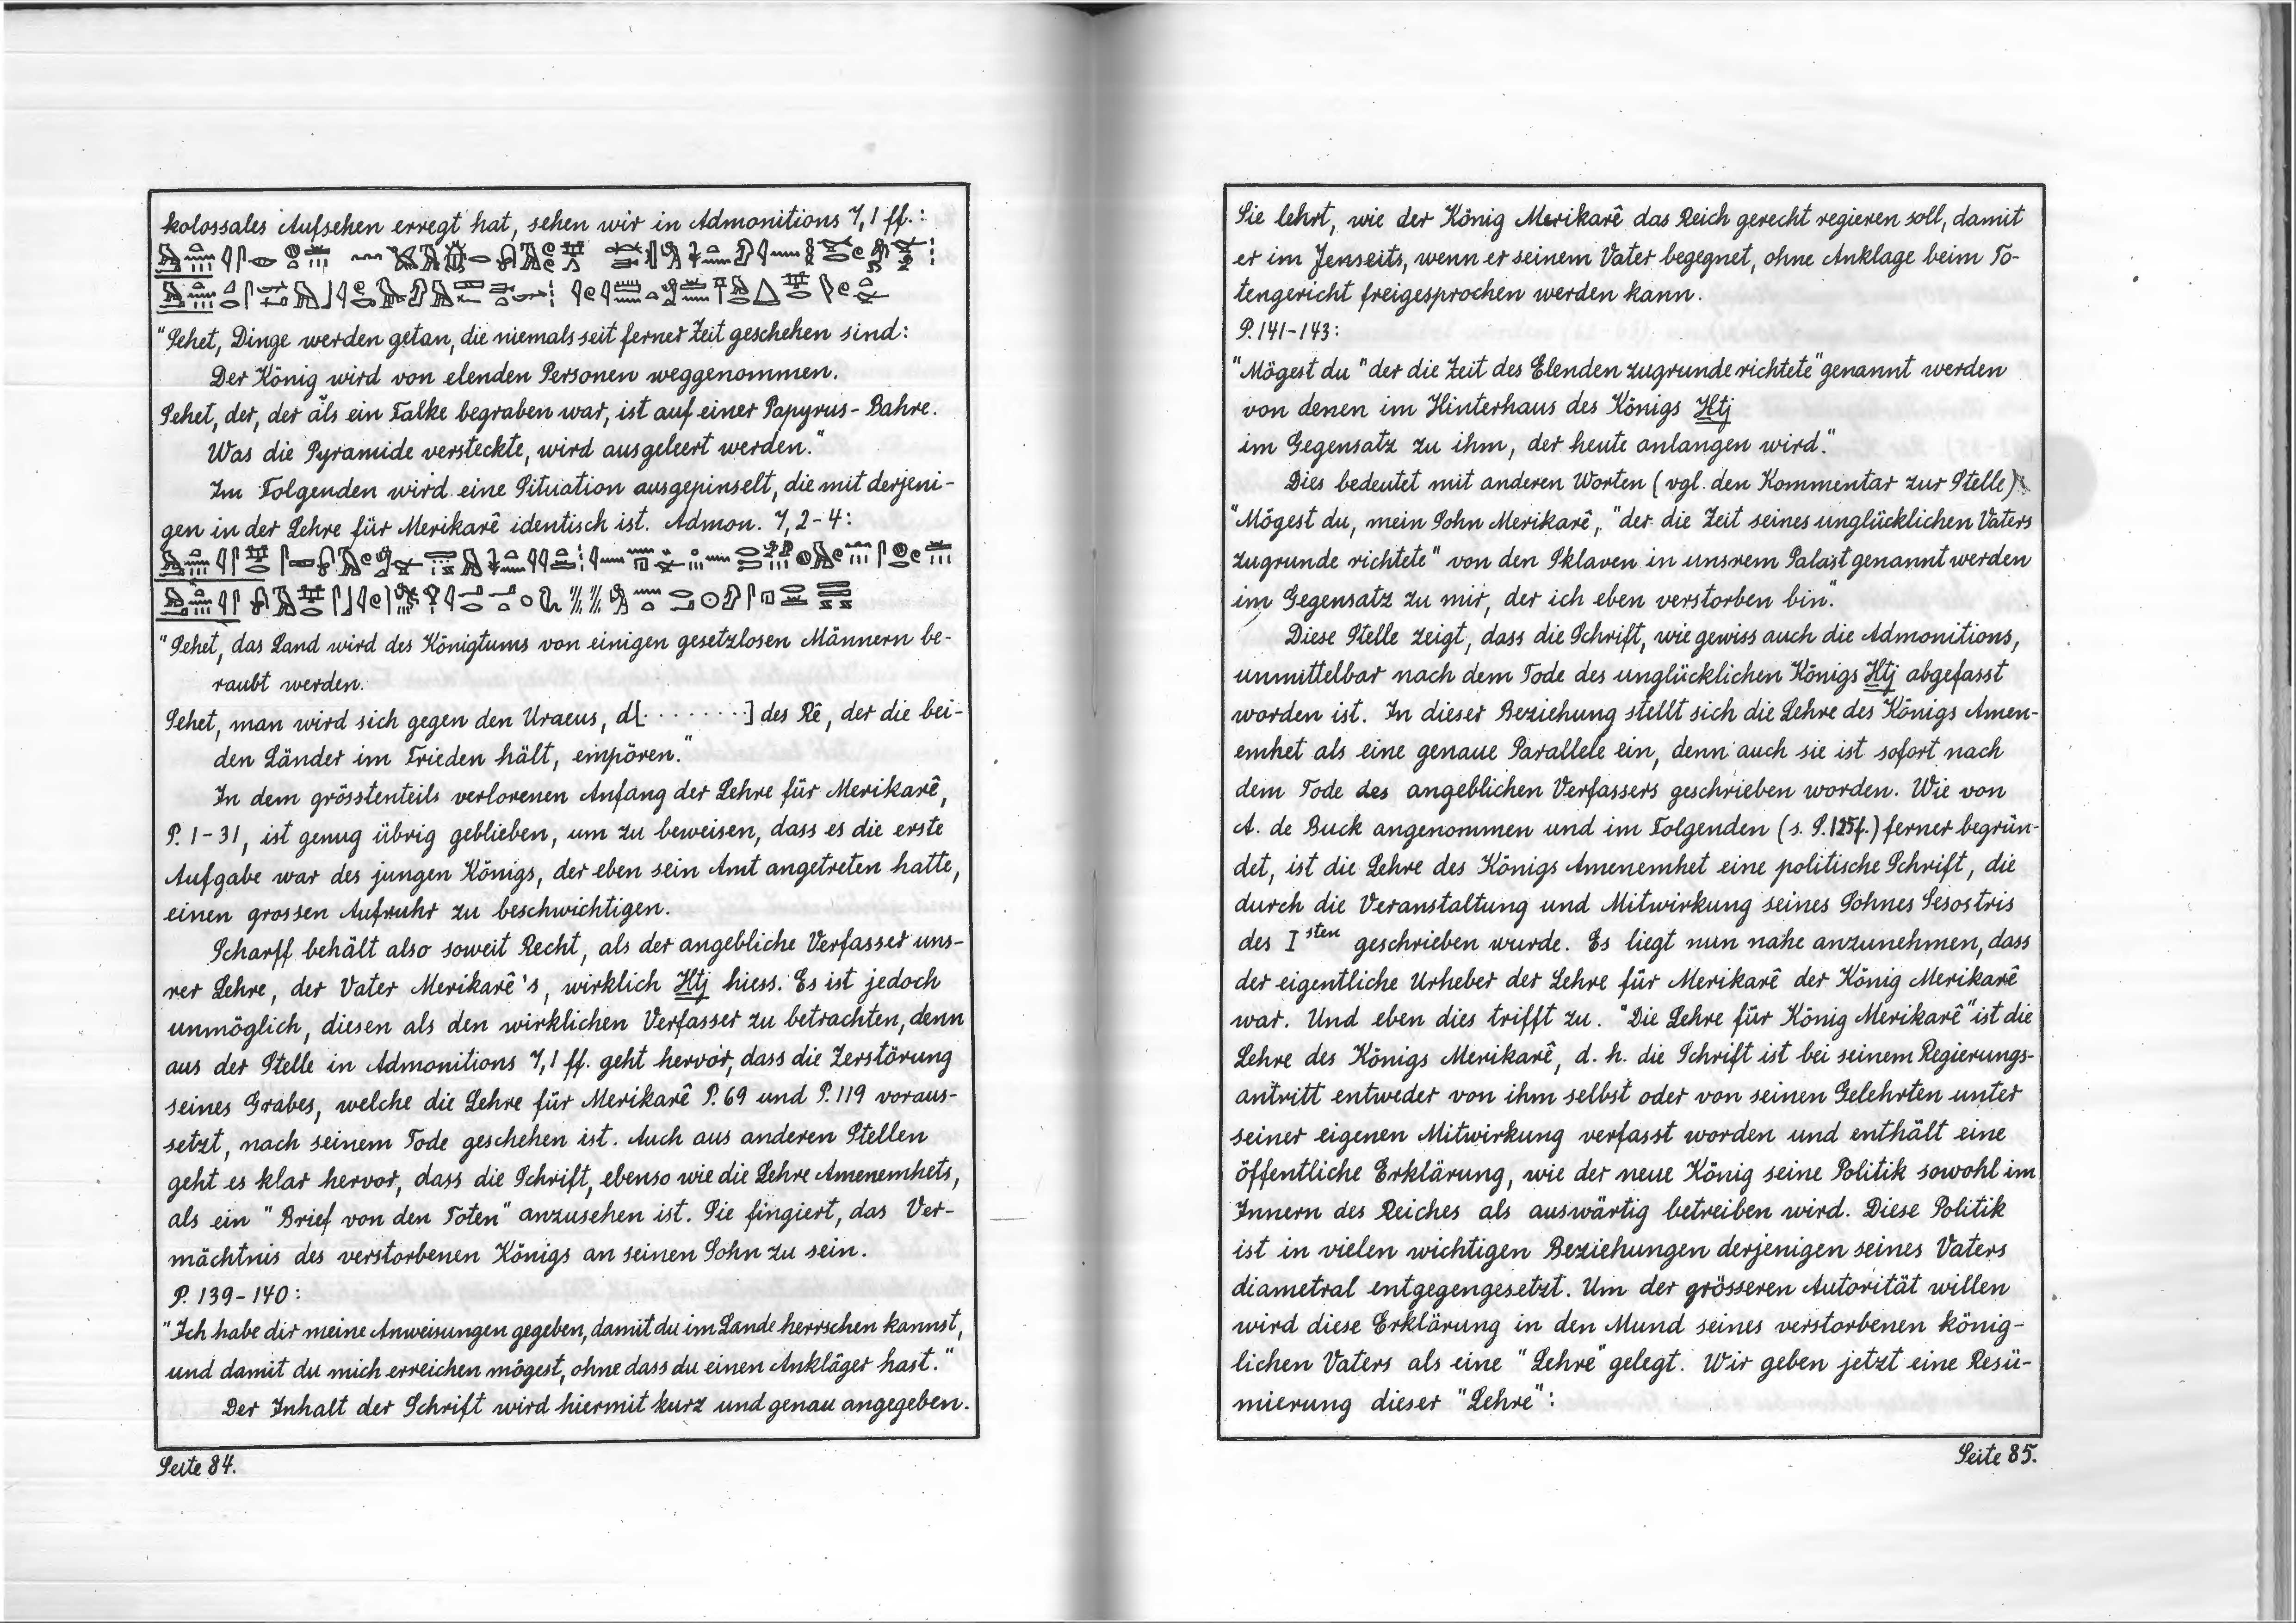 kolossales Aufsehen erregt hat, sehen wir in Admonitions 7,1 ff.:
"Sehet, Dinge werden getan, die niemals seit ferner Zeit geschehen sind:
Der König wird von elenden Personen weggenommen.
Sehet, der, der als ein Falke begraben war, ist auf einer Papyrus-Bahre.
Was die Pyramide versteckte, wird ausgeleert werden."
Im Folgenden wird eine Situation ausgepinselt, die mit derjeni-
gen in der Lehre für Merikarê identisch ist. Admon. 7,2-4:
"Sehet, das Land wird des Königtums von einigen gesetzlosen Männern be-
raubt werden.
Sehet, man wird sich gegen den Uraeus, d[........] des Rê, der die bei-
den Länder im Frieden hält, empören."
In dem grösstenteils verlorenen Anfang der Lehre für Merikarê,
P. 1-31, ist genug übrig geblieben, um zu beweisen, dass es die erste
Aufgabe war des jungen Königs, der eben sein Amt angetreten hatte,
einen grossen Aufruhr zu beschwichtigen.
Scharff behält also soweit Recht, als der angebliche Verfasser uns-
rer Lehre, der Vater Merikarê's, wirklich Ḫtj hiess. Es ist jedoch
unmöglich, diesen als den wirklichen Verfasser zu betrachten, denn
aus der Stelle in Admonitions 7,1 ff. geht hervor, dass die Zerstörung
seines Grabes, welche die Lehre für Merikarê P. 69 und P. 119 voraus-
setzt, nach seinem Tode geschehen ist. Auch aus anderen Stellen
geht es klar hervor, dass die Schrift, ebenso wie die Lehre Amenemhets,
als ein "Brief von den Toten" anzusehen ist. Sie fingiert, das Ver-
mächtnis des verstorbenen Königs an seinen Sohn zu sein.
P. 139-140:
"Ich habe dir meine Anweisungen gegeben, damit du im Lande herrschen kannst,
und damit du mich erreichen mögest, ohne dass du einen Ankläger hast."
Der Inhalt der Schrift wird hiermit kurz und genau angegeben.
Seite 84.
Sie lehrt, wie der König Merikarê das Reich gerecht regieren soll, damit
er im Jenseits, wenn er seinem Vater begegnet, ohne Anklage beim To-
tengericht freigesprochen werden kann.
P. 141-143:
"Mögest du "der die Zeit des Elenden zugrunde richtete" genannt werden
von denen im Hinterhaus des Königs Ḫtj
im Gegensatz zu ihm, der heute anlangen wird."
Dies bedeutet mit anderen Worten (vgl. den Kommentar zur Stelle):
"Mögest du, mein Sohn Merikarê, "der die Zeit seines unglücklichen Vaters
zugrunde richtete" von den Sklaven in unsrem Palast genannt werden
im Gegensatz zu mir, der ich eben verstorben bin".
Diese Stelle zeigt, dass die Schrift, wie gewiss auch die Admonitions,
unmittelbar nach dem Tode des unglücklichen Königs Ḫtj abgefasst
worden ist. In dieser Beziehung stellt sich die Lehre des Königs Amen-
emhet als eine genaue Parallele ein, denn auch sie ist sofort nach
dem Tode des angeblichen Verfassers geschrieben worden. Wie von
A. de Buck angenommen und im Folgenden (s. S. 125f.) ferner begrün-
det, ist die Lehre des Königs Amenemhet eine politische Schrift, die
durch die Veranstaltung und Mitwirkung seines Sohnes Sesostris
des I sten geschrieben wurde. Es liegt nun nahe anzunehmen, dass
der eigentliche Urheber der Lehre für Merikarê der König Merikarê
war. Und eben dies trifft zu. "Die Lehre für König Merikarê" ist die
Lehre des Königs Merikarê, d. h. die Schrift ist bei seinem Regierungs-
antritt entweder von ihm selbst oder von seinen Gelehrten unter
seiner eigenen Mitwirkung verfasst worden und enthält eine
öffentliche Erklärung, wie der neue König seine Politik sowohl im
Innern des Reiches als auswärtig betreiben wird. Diese Politik
ist in vielen wichtigen Beziehungen derjenigen seines Vaters
diametral entgegengesetzt. Um der grösseren Autorität willen
wird diese Erklärung in den Mund seines verstorbenen könig-
lichen Vaters als eine "Lehre" gelegt. Wir geben jetzt eine Resü-
mierung dieser "Lehre":
Seite 85.